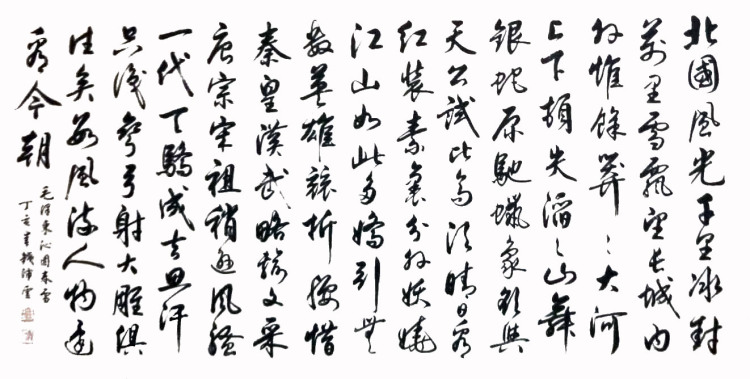 北國風光千里冰封
萬里雪飄望長城內
外惟餘莽〻大河
上下頓失滔〻山舞
銀蛇原馳蠟象欲與
天公試比高須晴日看
紅裝素裹分外妖嬈
江山如此多嬌引無
數英雄競折腰惜
秦皇漢武略輸文采
唐宗宋祖稍遜風騷
一代天驕成吉思汗
只識彎弓射大雕俱
往矣數風流人物還
看今朝
毛澤東沁園春雪
丁亥書錢沛雲